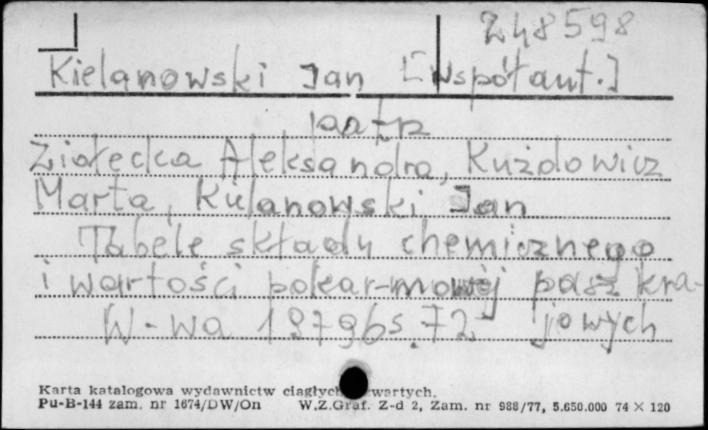 248598
Kielanowski Jan [współaut.]
patrz
Ziołecka Aleksandra, Kużdowicz
Marta, Kielanowski Jan
Tabele składu chemicznego
i wartości pokarmowej pasz kra-
jowych
W-wa 1979 6s. 72
Karta katalogowa wydawnictw ciągłych zwartych.
Pu-B-144 zam. nr 1674/DW/On W.Z.Graf. Z-d 2, Zam. nr 988/77, 5.650.000 74 × 120